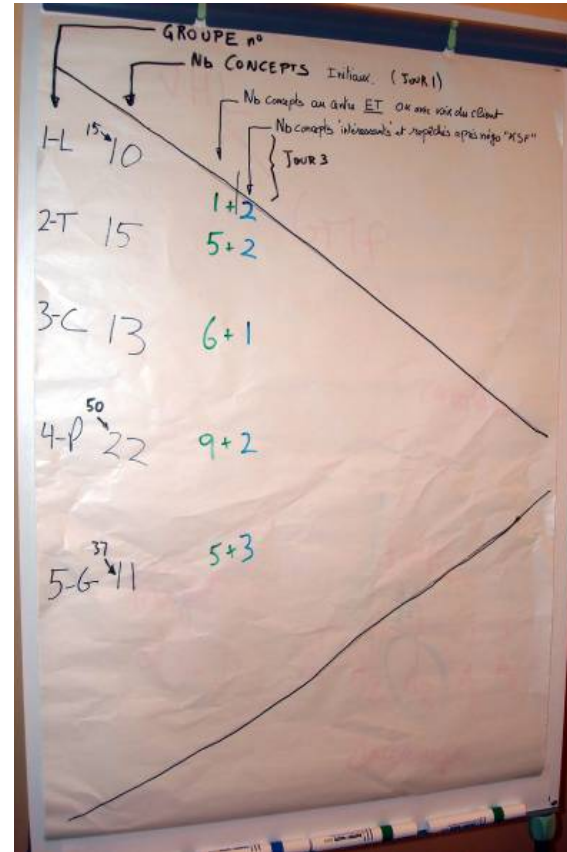 GROUPE nº
Nb CONCEPTS Initiaux (JOUR 1)
Nb concepts au centre ET OK avec voix du client
Nb concepts "intéressants" et repêchés après négo "KSF"
JOUR 3
1-L 15 10
1+2
2-T 15 5+2
3-C 13 6+1
50
4-P 22 9+2
37
5-G 11 5+3